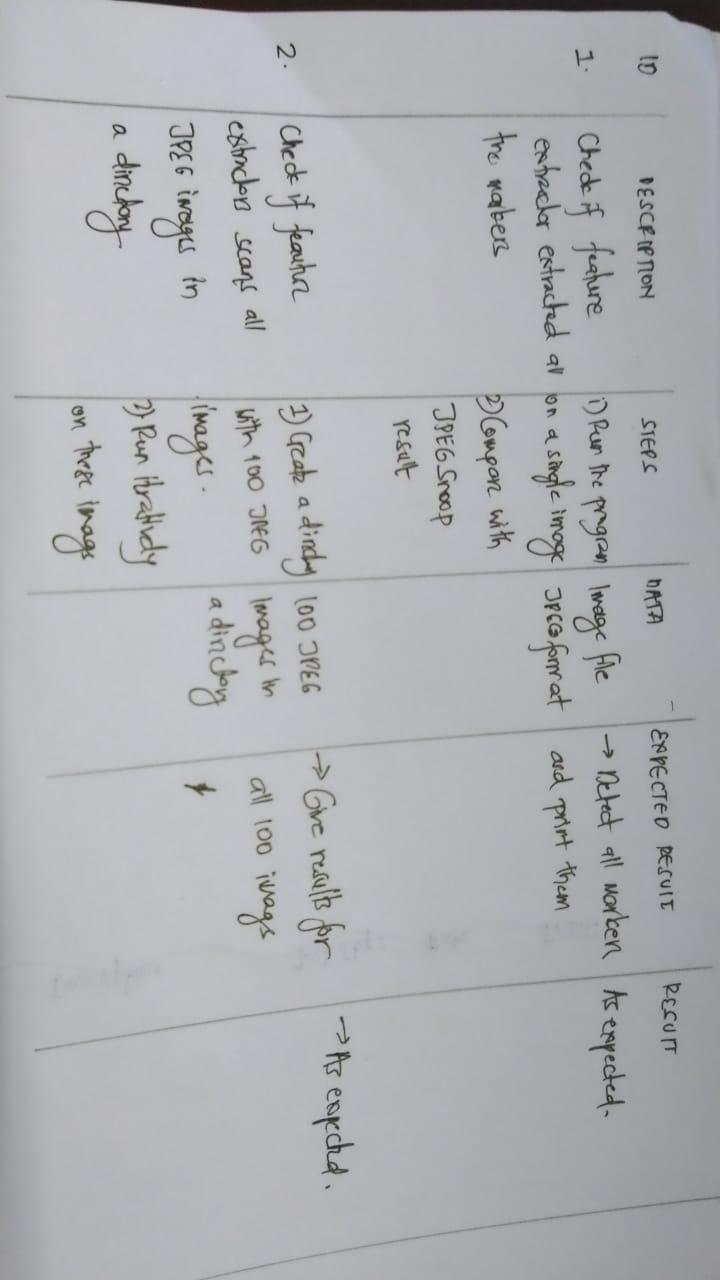 ID
DESCRIPTION
STEPS
DATA
EXPECTED RESULT
RESULT
1.
Check if feature
extractor extracted all
the markers
1) Run the program
on a single image
2) Compare with
JPEG Snoop
result
Image file
JPEG format
→ Detect all markers
and print them
As expected.
2.
Check if feature
extractors scans all
JPEG images in
a directory
1) Create a directory
with 100 JPEG
images.
2) Run iteratively
on these images
100 JPEG
Images in
a directory
→ Give results for
all 100 images
→ As expected.